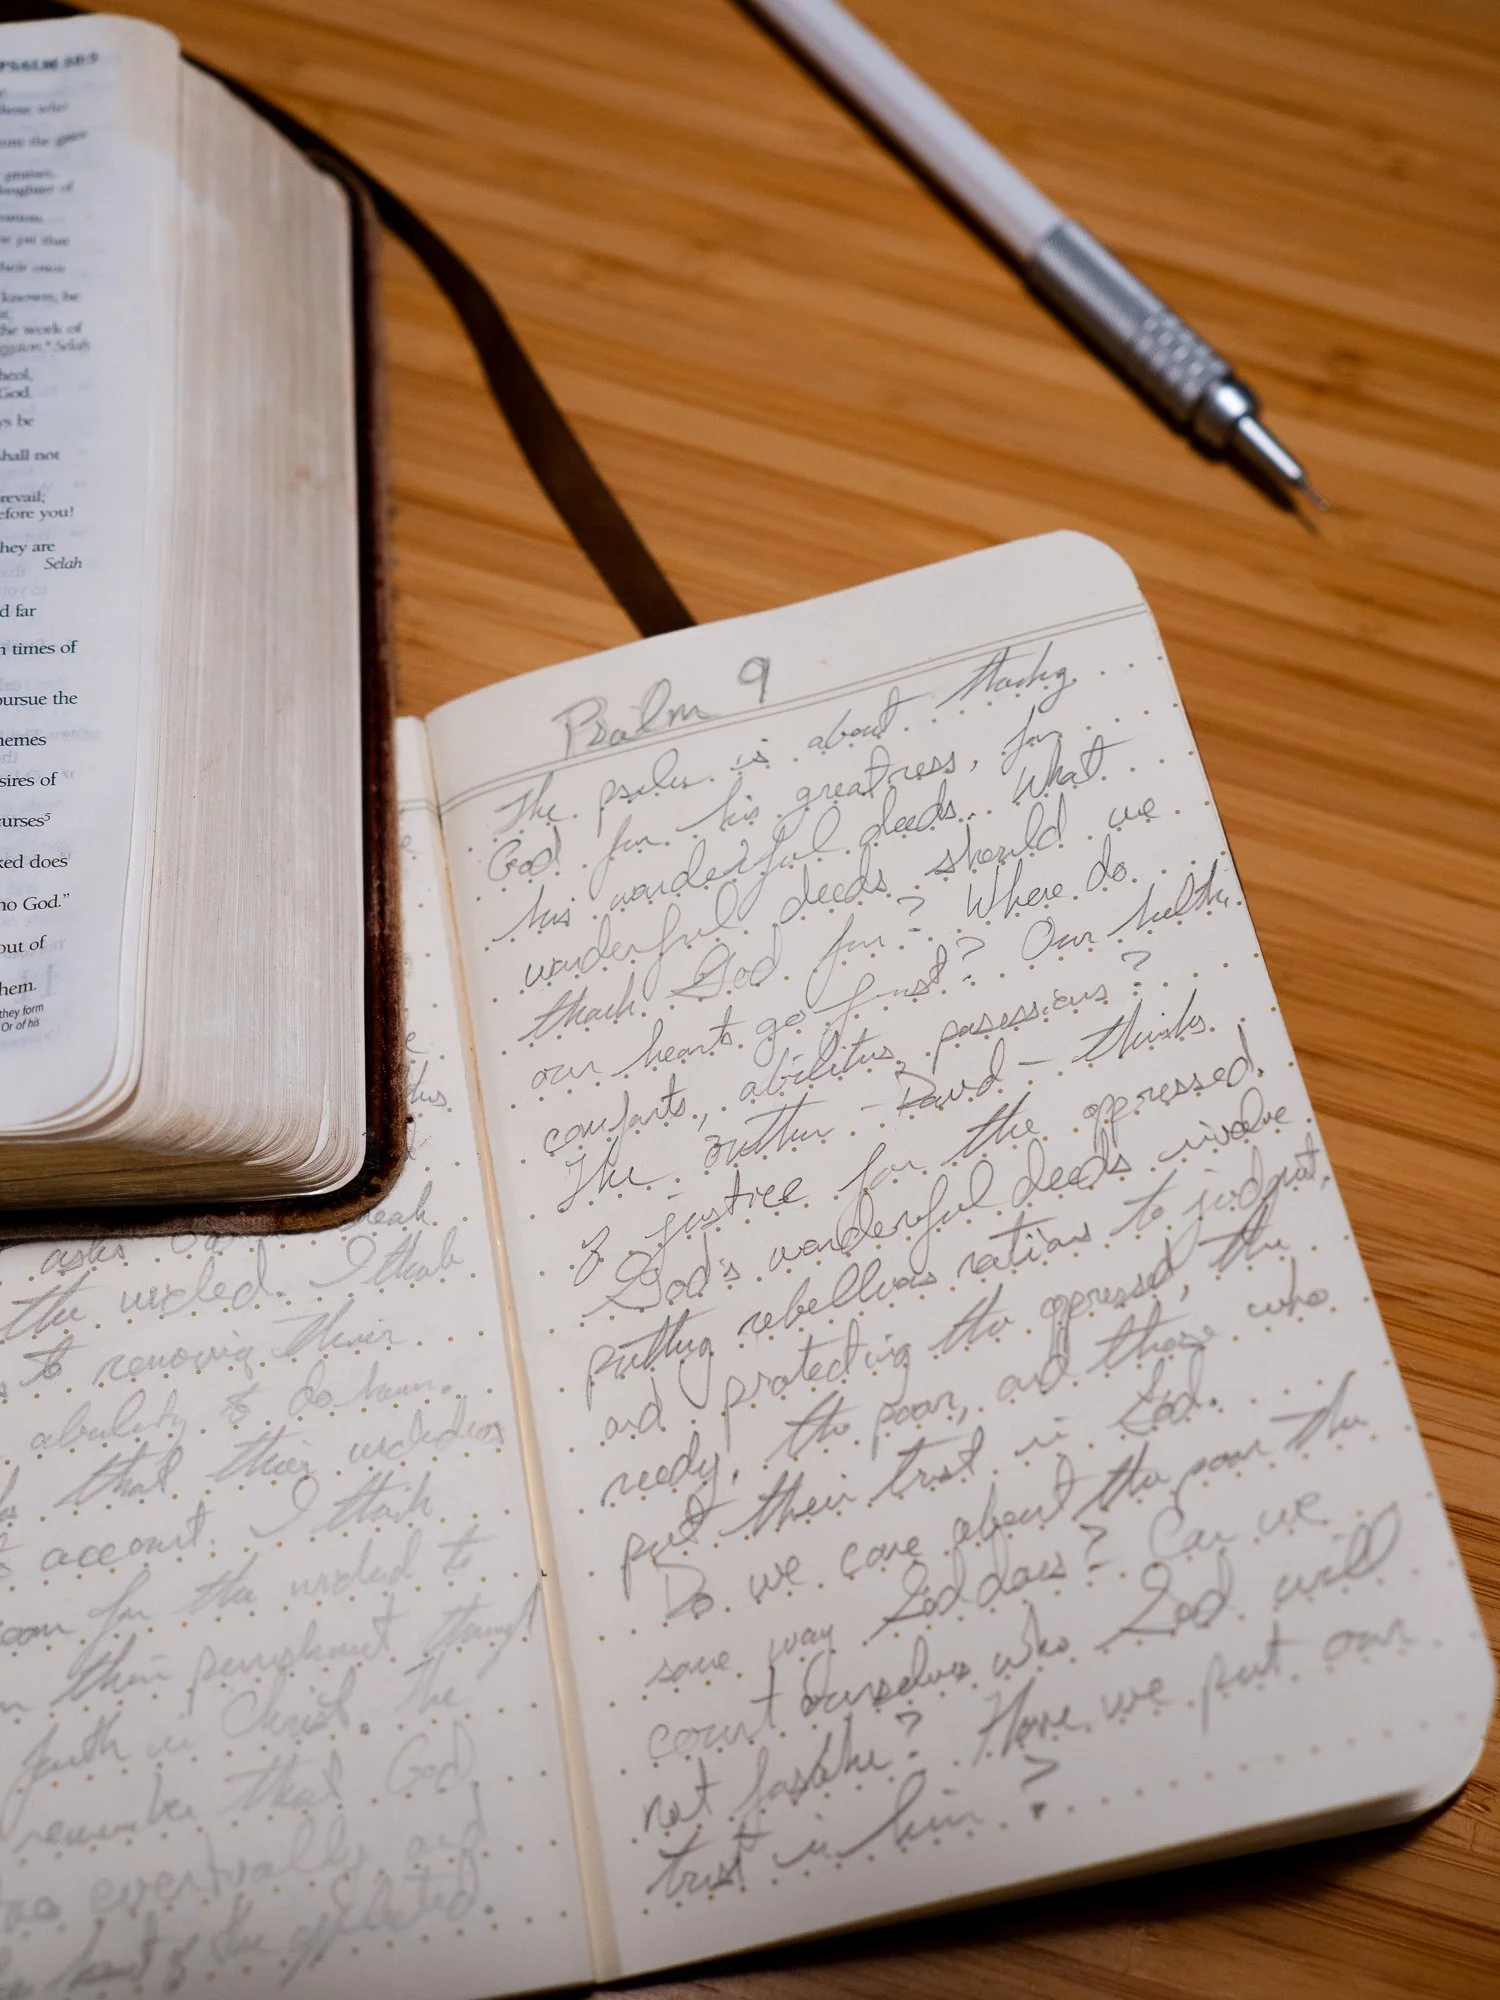 PSALM 10:5
these, who
from the gates
praises,
daughter of
the pit that
their own
known; he
the work of
Selah
heol,
God.
ys be
shall not
revail;
efore you!
hey are
Selah
d far
n times of
pursue the
hemes
sires of
curses⁵
ked does
no God.”
out of
hem.
they form
Or of his
asks God break
the wicked. I think
to removing their
ability to do harm.
that their wickedness
account. I think
for the wicked to
their punishment through
faith in Christ. The
remember that God
eventually and
of the afflicted.
Psalm 9
The psalm is about thanking
God for his greatness, for
his wonderful deeds. What
wonderful deeds should we
thank God for? Where do
our hearts go first? Our health,
comforts, abilities, possessions?
The author - David - thinks
of justice for the oppressed.
God's wonderful deeds involve
putting rebellious nations to judgment,
and protecting the oppressed, the
needy, the poor, and those who
put their trust in God.
Do we care about the poor the
same way God does? Can we
count ourselves who God will
not forsake? Have we put our
trust in him?